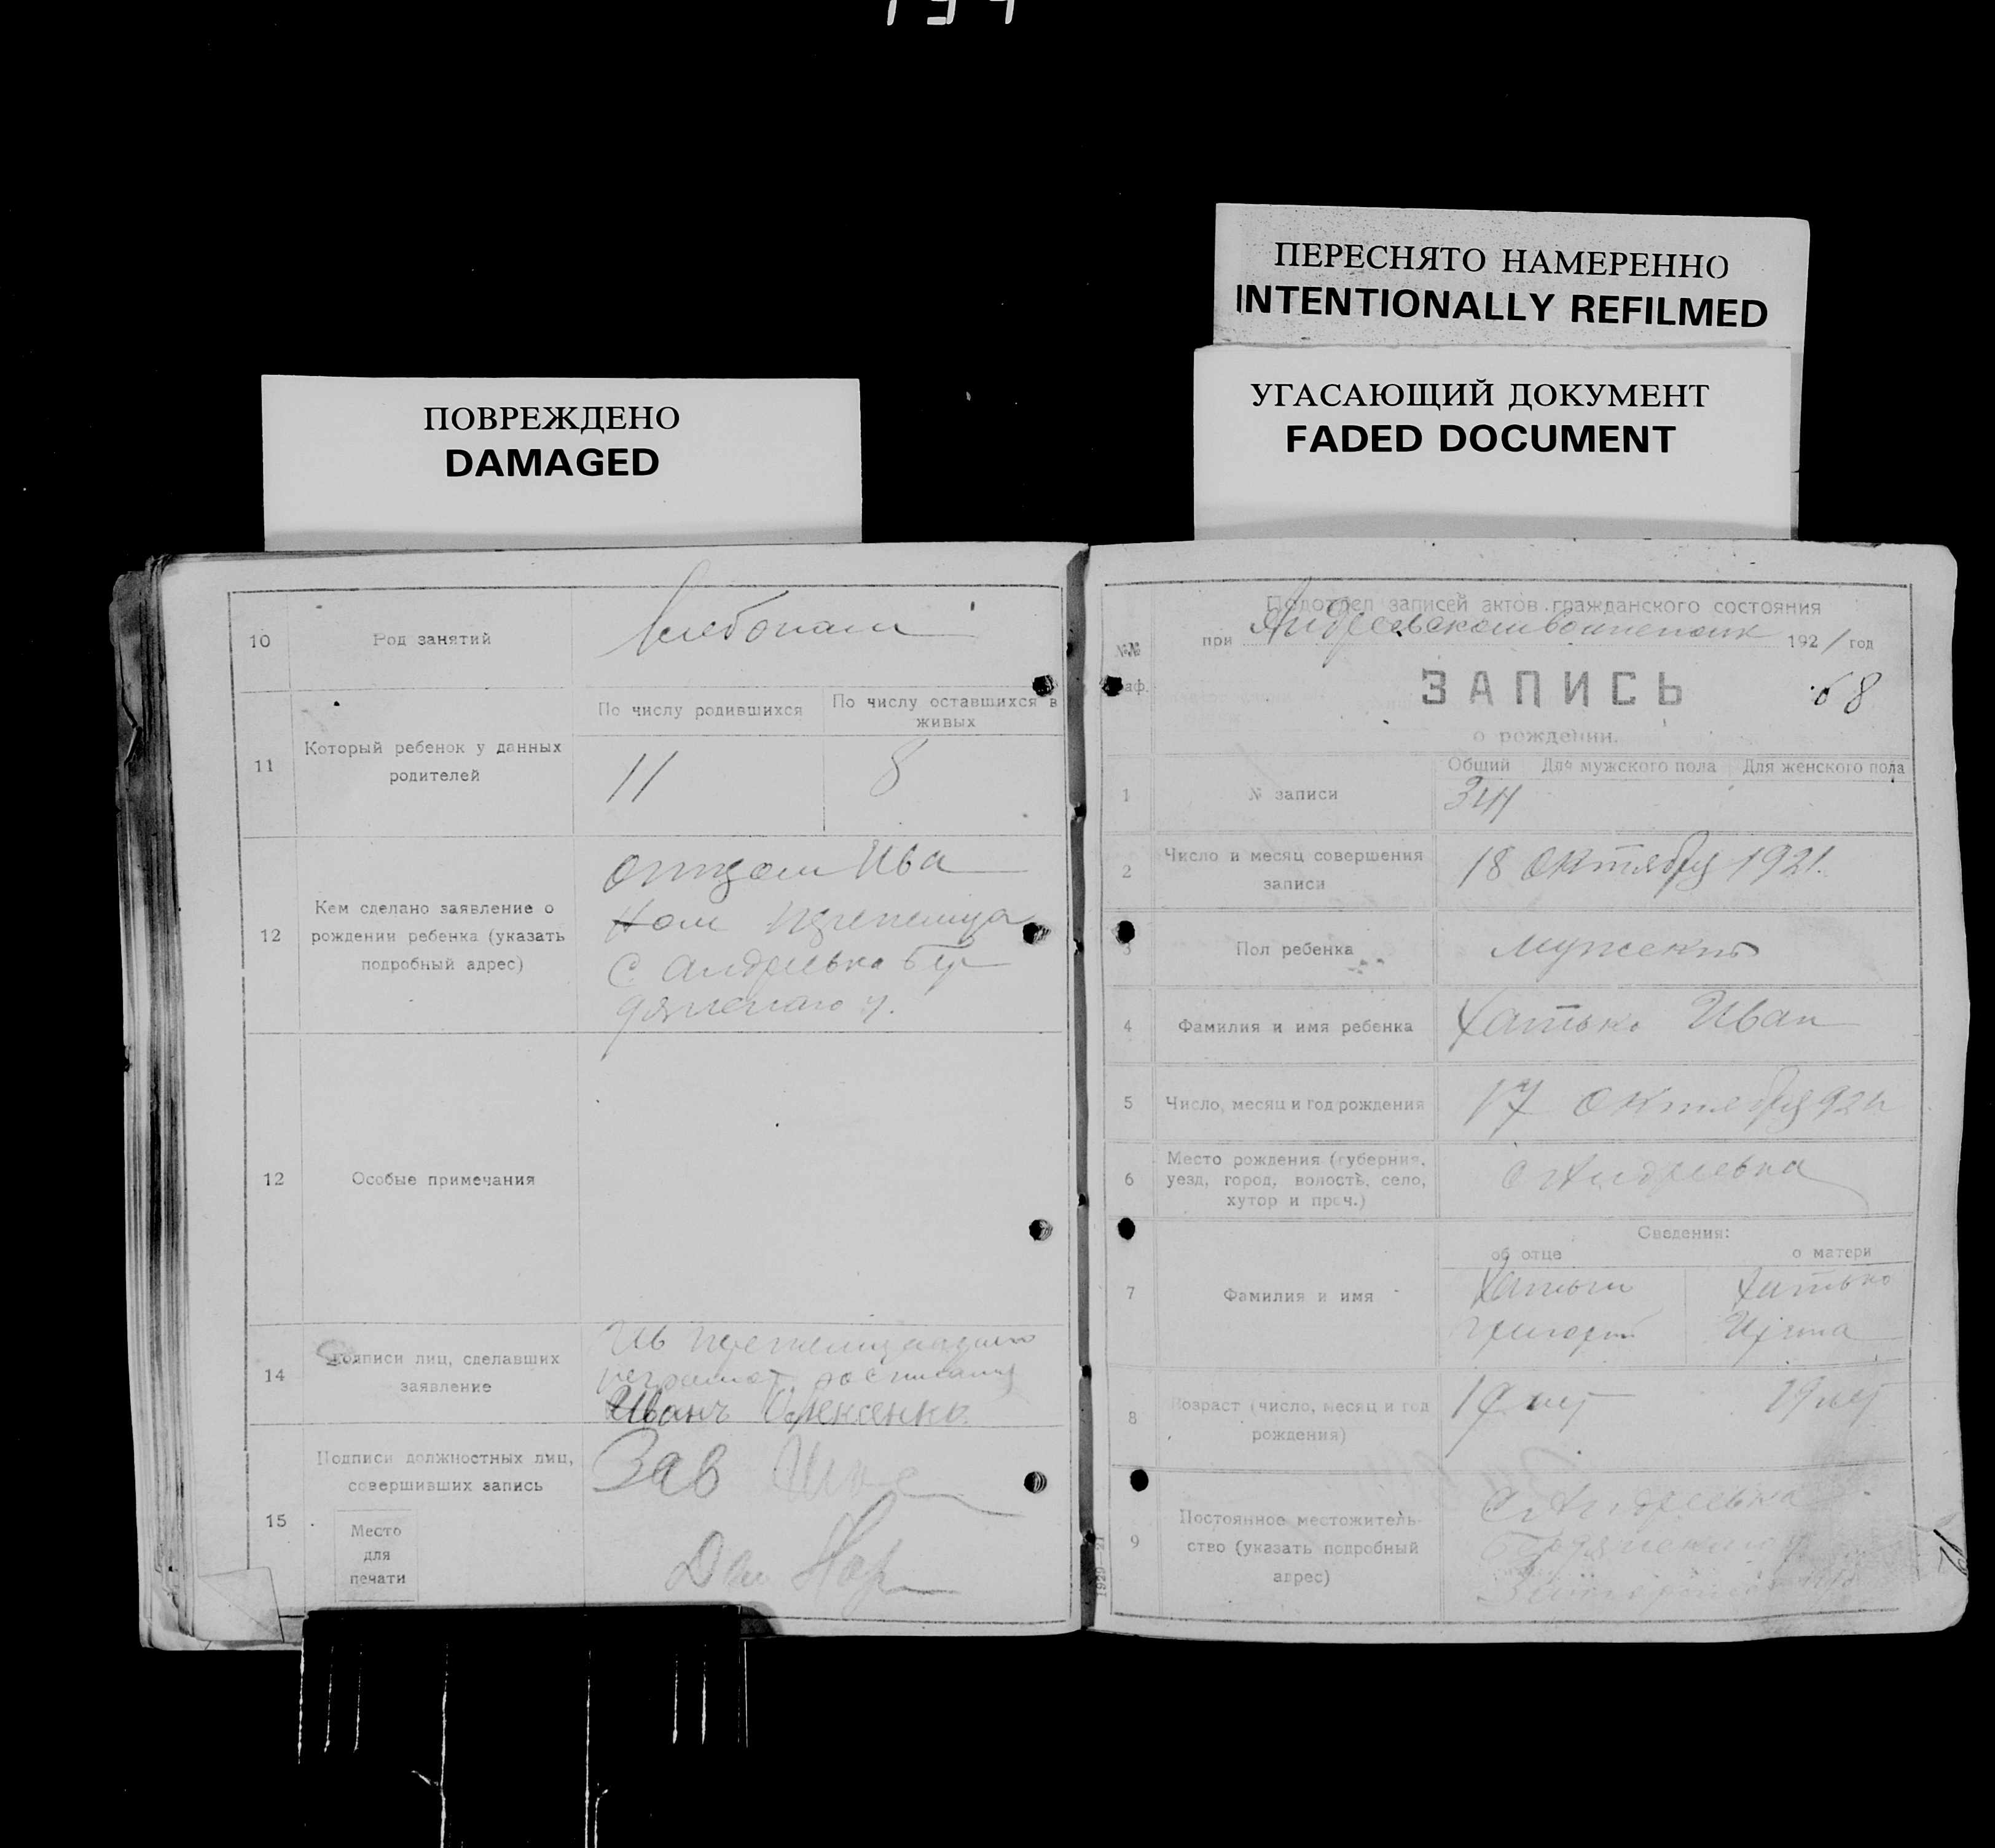 ПЕРЕСНЯТО НАМЕРЕННО
INTENTIONALLY REFILMED
УГАСАЮЩИЙ ДОКУМЕНТ
FADED DOCUMENT
ПОВРЕЖДЕНО
DAMAGED
10 Род занятий
11 Который ребенок у данных родителей
По числу родившихся
По числу оставшихся в живых
11
8
12 Кем сделано заявление о
рождении ребенка (указать
подробный адрес)
Отцом Ива
ном
С Андреевка Бер
дянского у.
12 Особые примечания
14 Подписи лиц, сделавших
заявление
Иванъ Олексенко
15 Подписи должностных лиц,
совершивших запись
Зав
Место
для
печати
Подотдел записей актов гражданского состояния
при 1921 год
№№
ЗАПИСЬ
68
о рождении.
Общий Для мужского пола Для женского пола
1 № записи
2 Число и месяц совершения
записи
18 Октября 1921.
3 Пол ребенка
мужский
4 Фамилия и имя ребенка
Хатько Иван
5 Число, месяц и год рождения
17 Октября
6 Место рождения (губерния,
уезд, город, волость, село,
хутор и проч.)
С Андреевка
Сведения:
об отце о матери
7 Фамилия и имя
Хатько
8 Возраст (число, месяц и год
рождения)
19 лет 19 лет
9 Постоянное местожитель-
ство (указать подробный
адрес)
С Андреевка